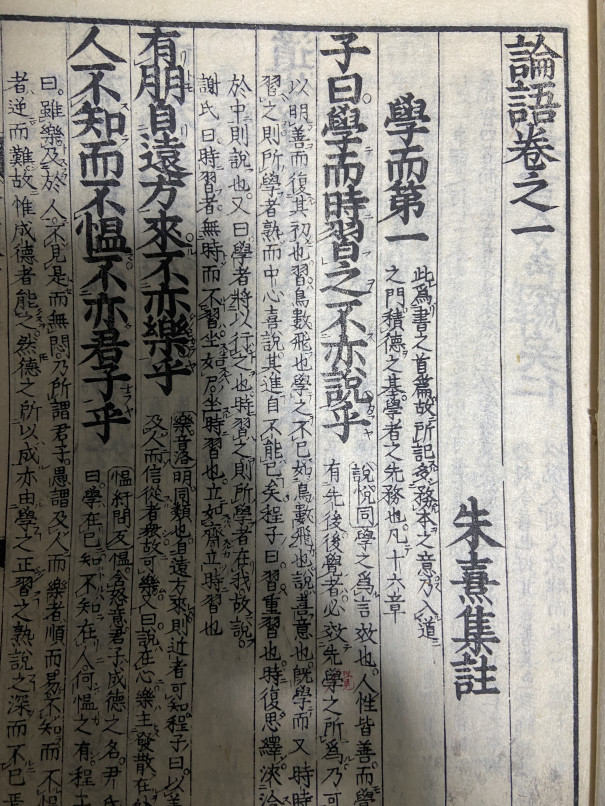 論語卷之一
朱熹集註
學而第一
此爲書之首篇故所記多務本之意乃入道
之門積德之基學者之先務也凡十六章
子曰學而時習之不亦說乎
說悅同學之爲言效也人性皆善而
有先後後覺者必效先學之所爲乃可
以明善而復其初也習鳥數飛也學之不已如鳥數飛也說喜意也既學而又時時
習之則所學者熟而中心喜說其進自不能已矣程子曰習重習也時復思繹浹洽
於中則說也又曰學者將以行之也時習之則所學者在我故說
謝氏曰時習者無時而不習坐如尸坐時習也立如齊立時習也
有朋自遠方來不亦樂乎
樂音洛朋同類也自遠方來則近者可知程子曰以善
及人而信從者衆故可樂又曰說在心樂主發散在
人不知而不慍不亦君子乎
慍紆問反慍含怒意君子成德之名尹氏
曰學在己知不知在人何慍之有程子
曰雖樂及於人不見是而無悶乃所謂君子愚謂及人而樂者順而易不知而不慍
者逆而難故惟成德者能之然德之所以成亦由學之正習之熟說之深而不已焉